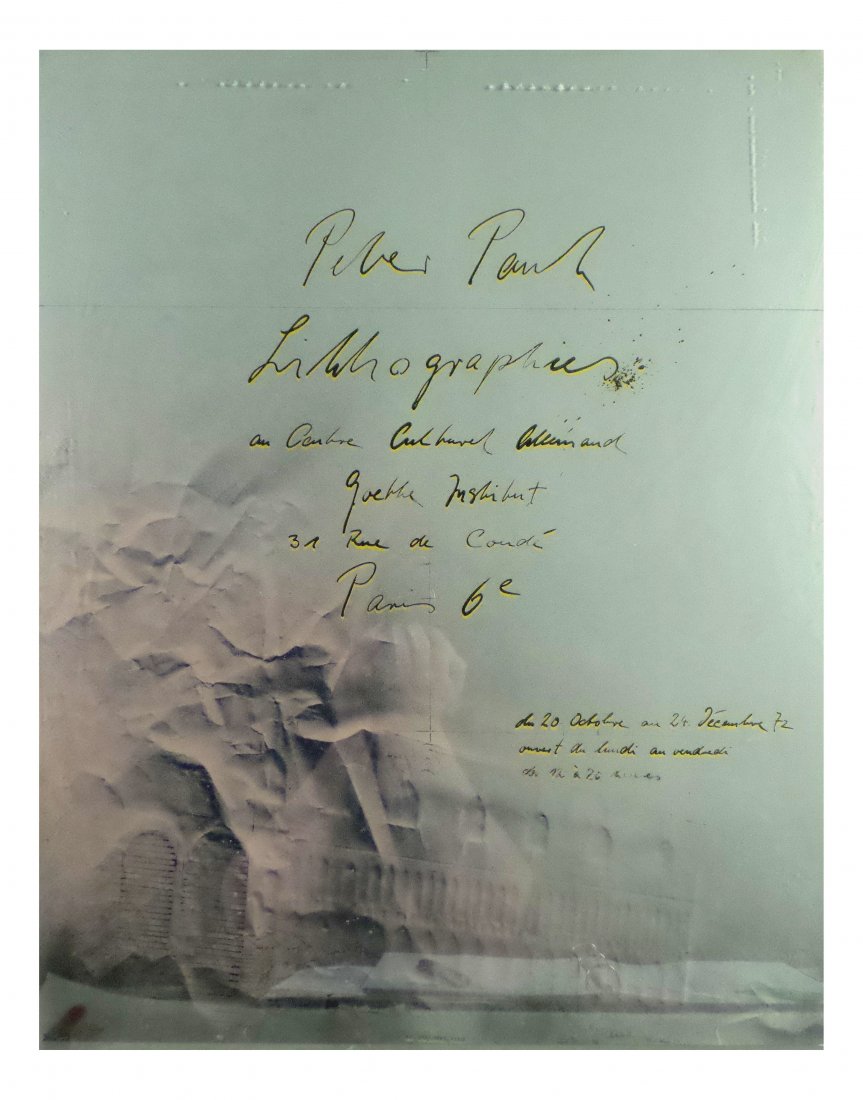 Peter Paul
Lithographies
au Centre Culturel Allemand
Goethe Institut
31 Rue de Condé
Paris 6e
du 20 Octobre au 24 Décembre 72
ouvert du lundi au vendredi
de à heures